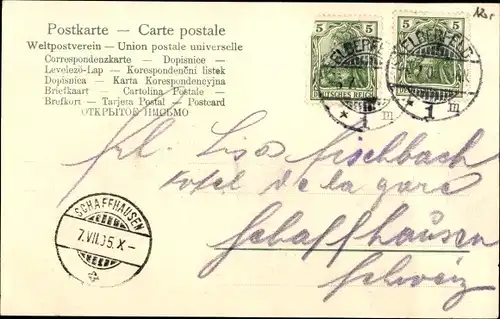 Postkarte — Carte postale
Weltpostverein — Union postale universelle
Correspondenzkarte — Dopisnice
Levelező-Lap — Korespondenční listek
Dopisnica — Karta Korespondencyjna
Briefkaart — Cartolina Postale
Brefkort — Tarjeta Postal — Postcard
ОТКРЫТОЕ ПИСЬМО
5 5
DEUTSCHES REICH
5 5
ELBERFELD
* 1 m
ELBERFELD
* 1 m
Frl. Lisa Fischbach
Hotel de la gare
Schaffhausen
Schweiz
SCHAFFHAUSEN
7.VII.05.X–